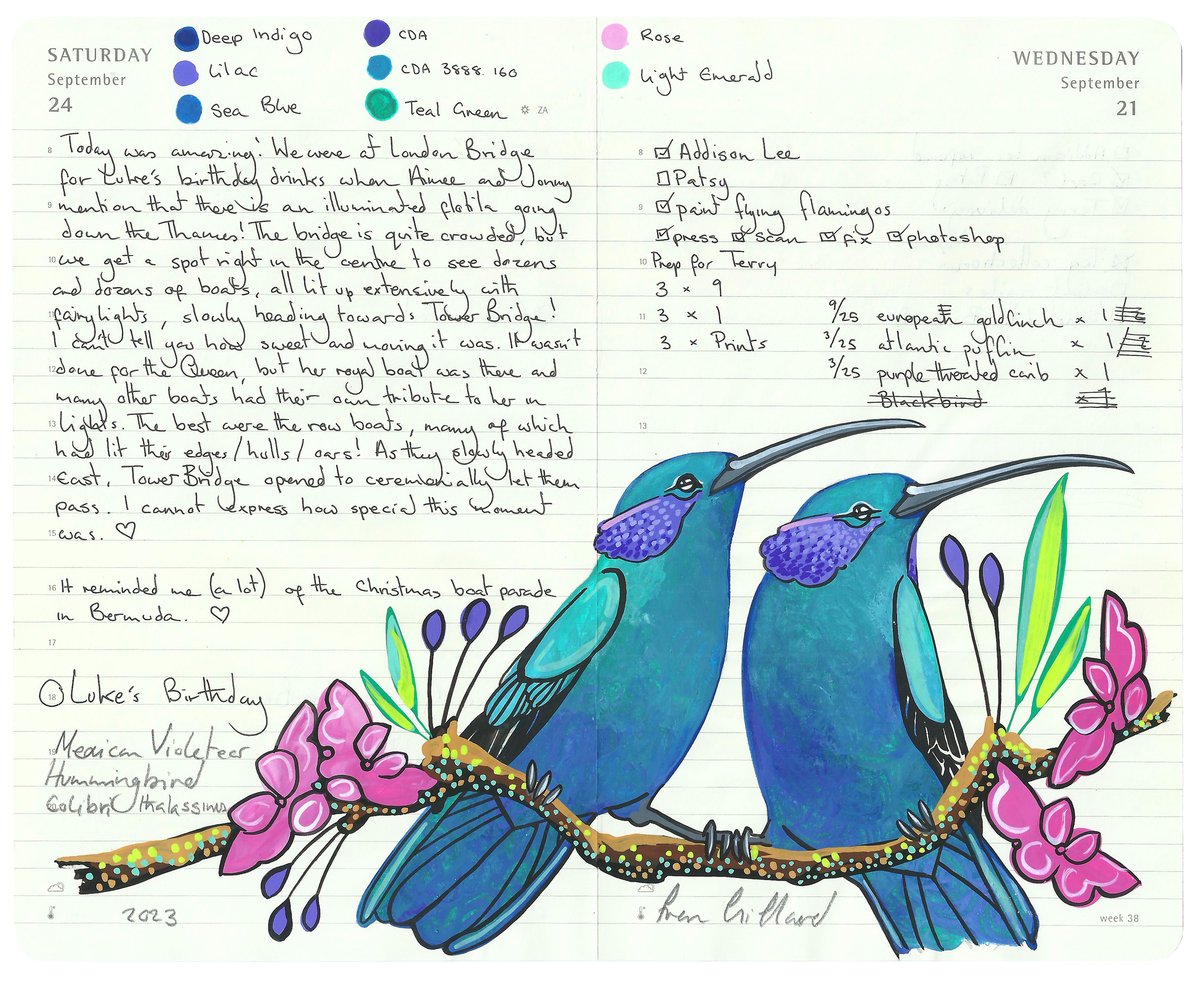 SATURDAY
September
24
Deep Indigo
Lilac
Sea Blue
CDA
CDA 3888.160
Teal Green
ZA
8 Today was amazing! We were at London Bridge
for Luke's birthday drinks when Aimee and Jonny
9 mention that there is an illuminated flotila going
down the Thames! The bridge is quite crowded, but
10 we get a spot right in the centre to see dozens
and dozens of boats, all lit up extensively with
11 fairylights, slowly heading towards Tower Bridge!
I can't tell you how sweet and moving it was. It wasn't
12 done for the Queen, but her royal boat was there and
many other boats had their own tribute to her in
13 Lights. The best were the row boats, many of which
had lit their edges/hulls/oars! As they slowly headed
14 East, Tower Bridge opened to ceremonially let them
pass. I cannot express how special this moment
15 was. ♡
16 It reminded me (a lot) of the Christmas boat parade
in Bermuda. ♡
17
18 Luke's Birthday
19 Mexican Violetear
Hummingbird
Colibri thalassinus
2023
Rose
Light Emerald
WEDNESDAY
September
21
8 ☑ Addison Lee
☐ Patsy
9 ☑ paint flying flamingos
☑ press ☑ scan ☑ fix ☑ photoshop
10 Prep for Terry
3 × 9
11 3 × 1 9/25 european goldfinch × 1
3 × Prints 3/25 atlantic puffin × 1
12 3/25 purple throated carib × 1
Blackbird × 1
13
Fran Giffard
week 38